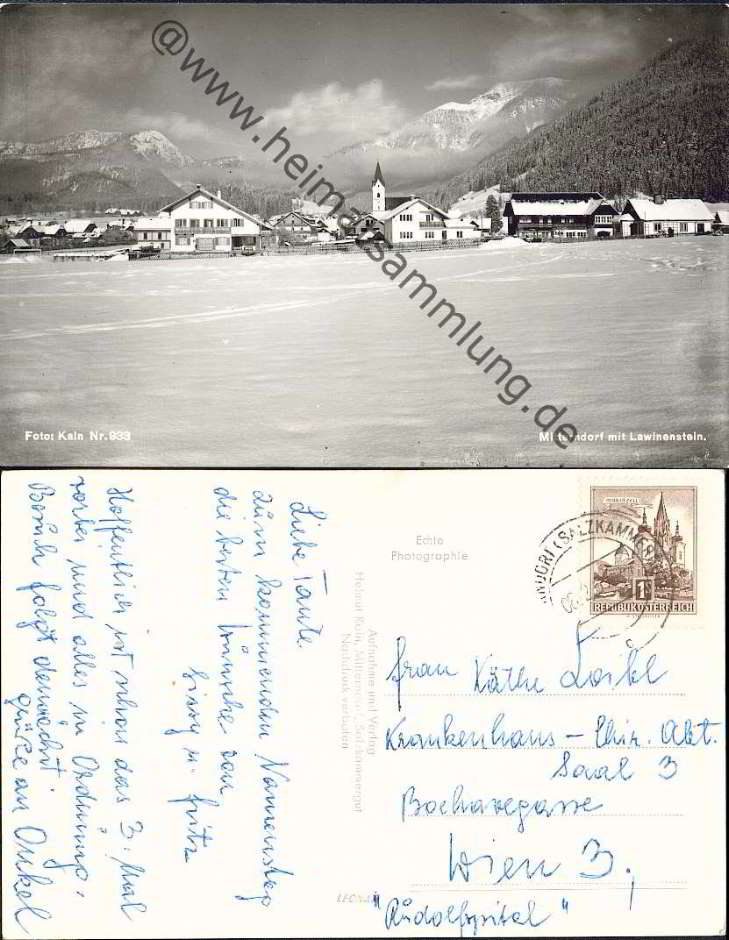 @www.heimatsammlung.de
Foto: Kain Nr. 833
Mitterndorf mit Lawinenstein.
Liebe Tante
zum kommenden Namenstag
die besten Wünsche von
Sissy u. Fritz
Hoffentlich ist schon das 3. Mal
vorbei und alles in Ordnung.
Besuch folgt demnächst
Grüße an Onkel
Echte
Photographie
Aufnahme und Verlag
Helmut Kain, Mitterndorf, Salzkammergut
Nachdruck verboten
LEONAR
MARIAZELL
1S
REPUBLIK ÖSTERREICH
NDORF (SALZKAMMER
Frau Käthe Loibl
Krankenhaus – Chir. Abt.
Saal 3
Boerhavegasse
Wien 3,
"Rudolfspital"